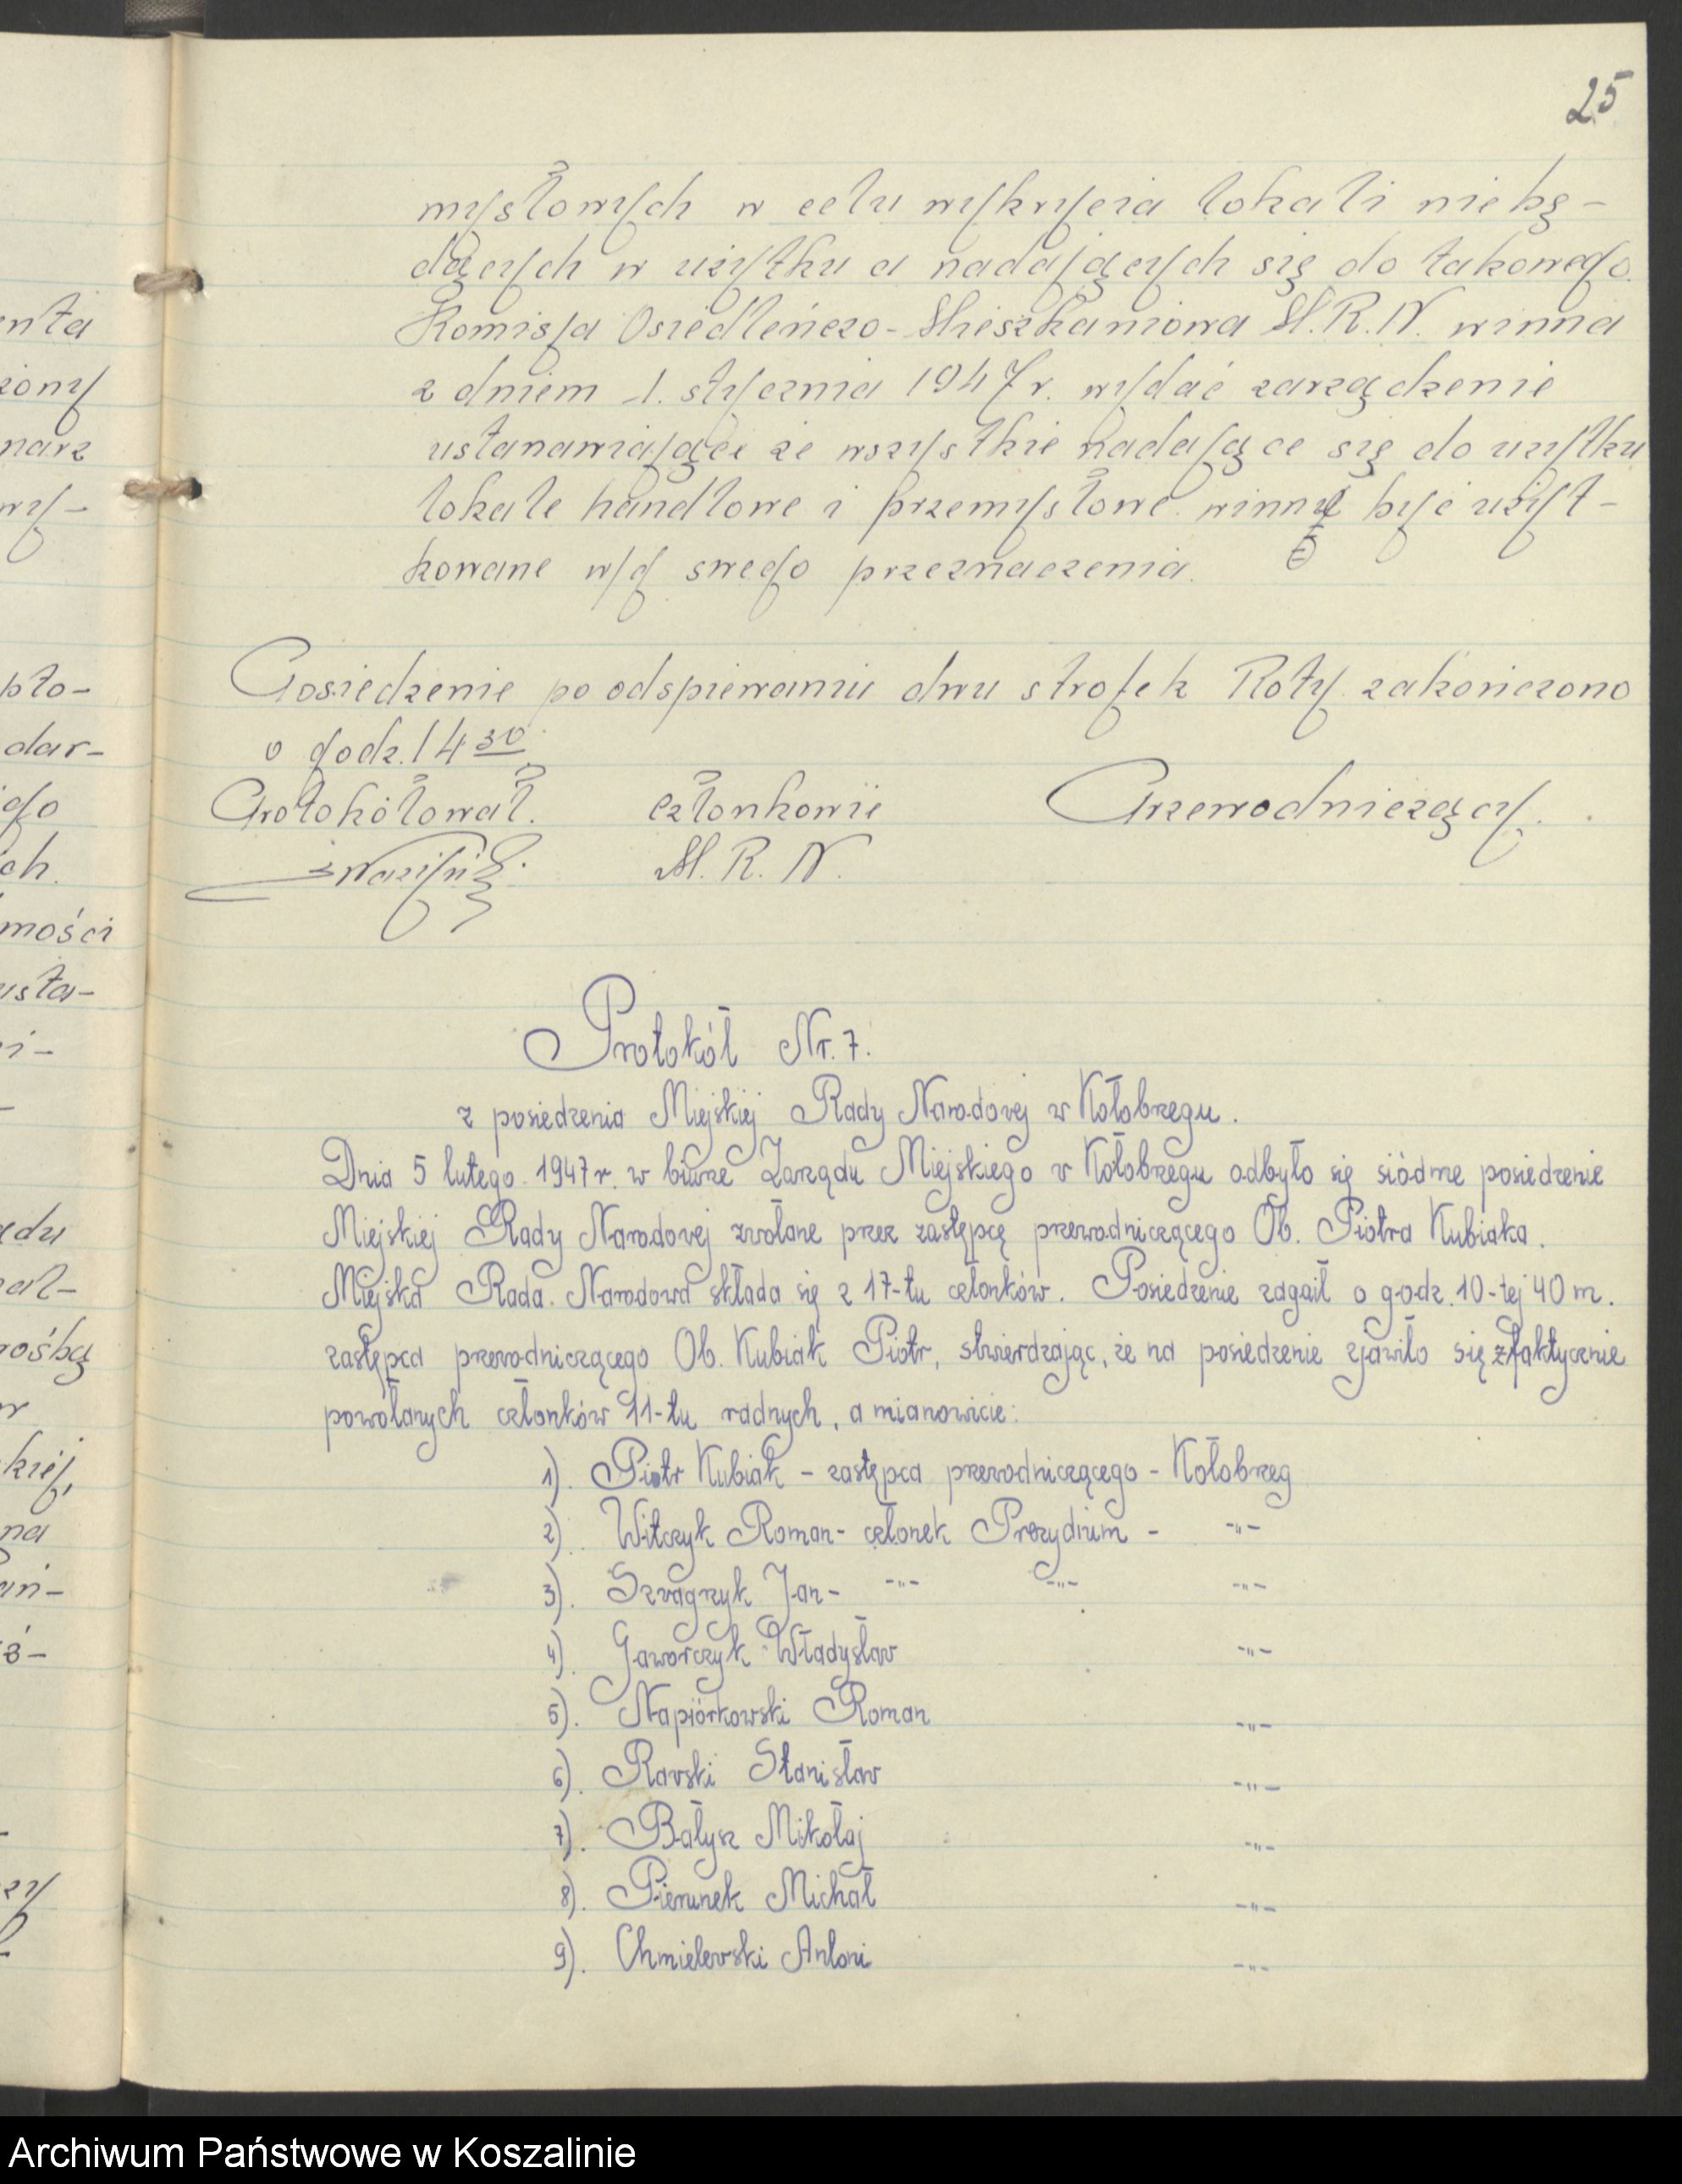 25
mysłowych w celu wykrycia lokali niebę-
dących w użytku a nadających się do takowego.
Komisja Osiedleńczo-Mieszkaniowa M.R.N. winna
z dniem 1. stycznia 1947 r. wydać zarządzenie
ustanawiające że wszystkie nadające się do użytku
lokale handlowe i przemysłowe winny być użyt-
kowane w/g swego przeznaczenia.
Posiedzenie po odspiewaniu dwu strofek Roty zakończono
o godz. 14 30
Protokółował. członkowie Przewodniczący.
M. R. N.
Protokół Nr. 7.
z posiedzenia Miejskiej Rady Narodowej w Kołobrzegu.
Dnia 5 lutego 1947 r. w biurze Zarządu Miejskiego w Kołobrzegu odbyło się siódme posiedzenie
Miejskiej Rady Narodowej zwołane przez zastępcę przewodniczącego Ob. Piotra Kubiaka.
Miejska Rada Narodowa składa się z 17-tu członków. Posiedzenie zagaił o godz. 10-tej 40 m.
zastępca przewodniczącego Ob. Kubiak Piotr, stwierdzając, że na posiedzenie zjawiło się z faktycznie
powołanych członków 11-tu radnych, a mianowicie:
1). Piotr Kubiak - zastępca przewodniczącego - Kołobrzeg
2). Witczyk Roman - członek Prezydium - -"-
3). Szwagrzyk Jan - -"- -"- -"-
4). Gaworczyk Władysław -"-
5). Napiórkowski Roman -"-
6). Rawski Stanisław -"-
7). Bałysz Mikołaj -"-
8). Pierunek Michał -"-
9). Chmielewski Antoni -"-
enta
zony
narz
wy-
pło-
dar-
ch.
mości
usta-
i-
ądu
rośbą
kiej,
na
ań-
Archiwum Państwowe w Koszalinie